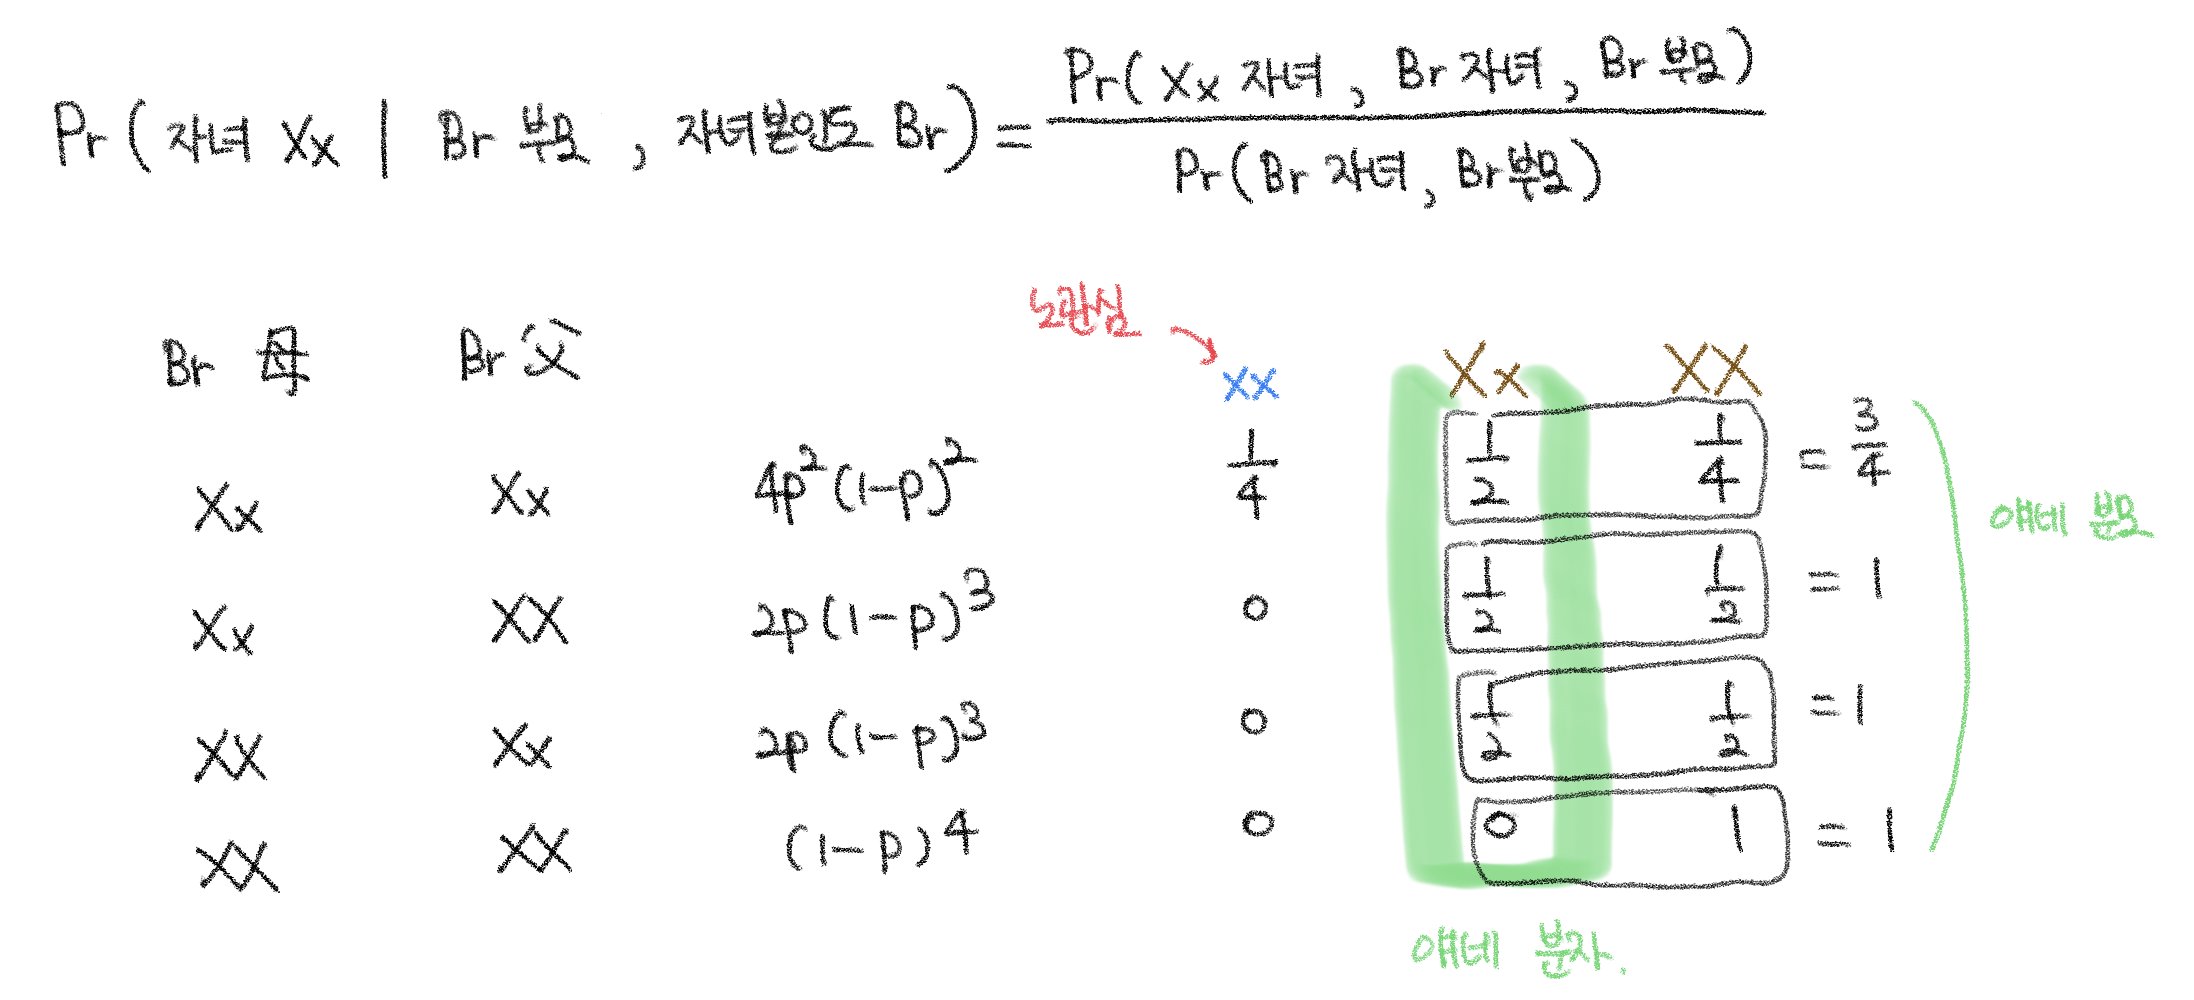 Pr( 자녀 Xx | Br 부모, 자녀본인도 Br) = Pr( Xx 자녀, Br 자녀, Br 부모) / Pr(Br 자녀, Br부모)
노관심
Br 母 Br 父 xx Xx XX
Xx Xx 4p²(1-p)² 1/4 1/2 1/4 = 3/4
얘네 분모
Xx XX 2p(1-p)³ 0 1/2 1/2 = 1
XX Xx 2p(1-p)³ 0 1/2 1/2 = 1
XX XX (1-p)⁴ 0 0 1 = 1
얘네 분자.